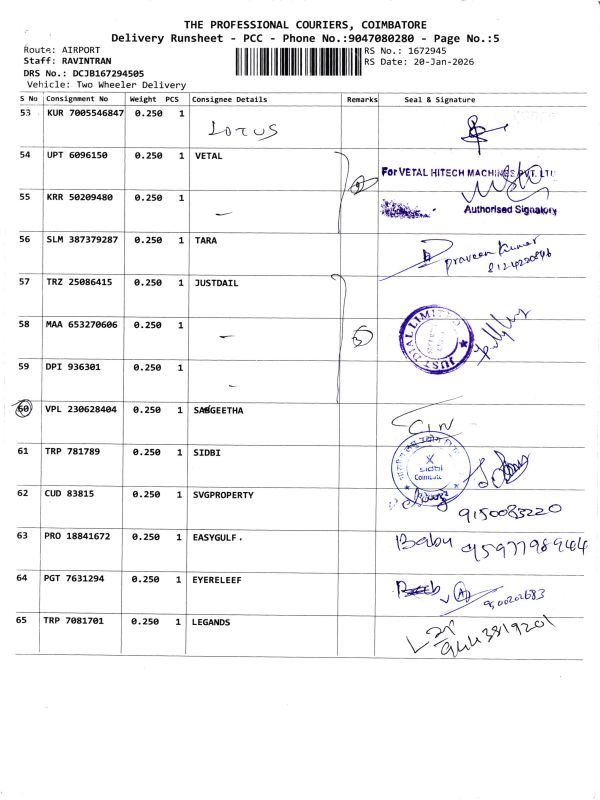 THE PROFESSIONAL COURIERS, COIMBATORE
Delivery Runsheet - PCC - Phone No.:9047080280 - Page No.:5
Route: AIRPORT
RS No.: 1672945
Staff: RAVINTRAN
RS Date: 20-Jan-2026
DRS No.: DCJB167294505
Vehicle: Two Wheeler Delivery
S No Consignment No Weight PCS Consignee Details Remarks Seal & Signature
53 KUR 7005546847 0.250 1 LOTUS
54 UPT 6096150 0.250 1 VETAL
For VETAL HITECH MACHINES PVT. LTD
55 KRR 50209480 0.250 1 -
Authorised Signatory
56 SLM 387379287 0.250 1 TARA
Praveen Kumar
57 TRZ 25086415 0.250 1 JUSTDAIL
58 MAA 653270606 0.250 1 -
3
JUST DIAL LIMITED
59 DPI 936301 0.250 1 -
60 VPL 230628404 0.250 1 SANGEETHA
61 TRP 781789 0.250 1 SIDBI
sidbi
Coimbatore
62 CUD 83815 0.250 1 SVGPROPERTY
9150083220
63 PRO 18841672 0.250 1 EASYGULF.
Babu 9597798944
64 PGT 7631294 0.250 1 EYERELEEF
65 TRP 7081701 0.250 1 LEGANDS
9443819201